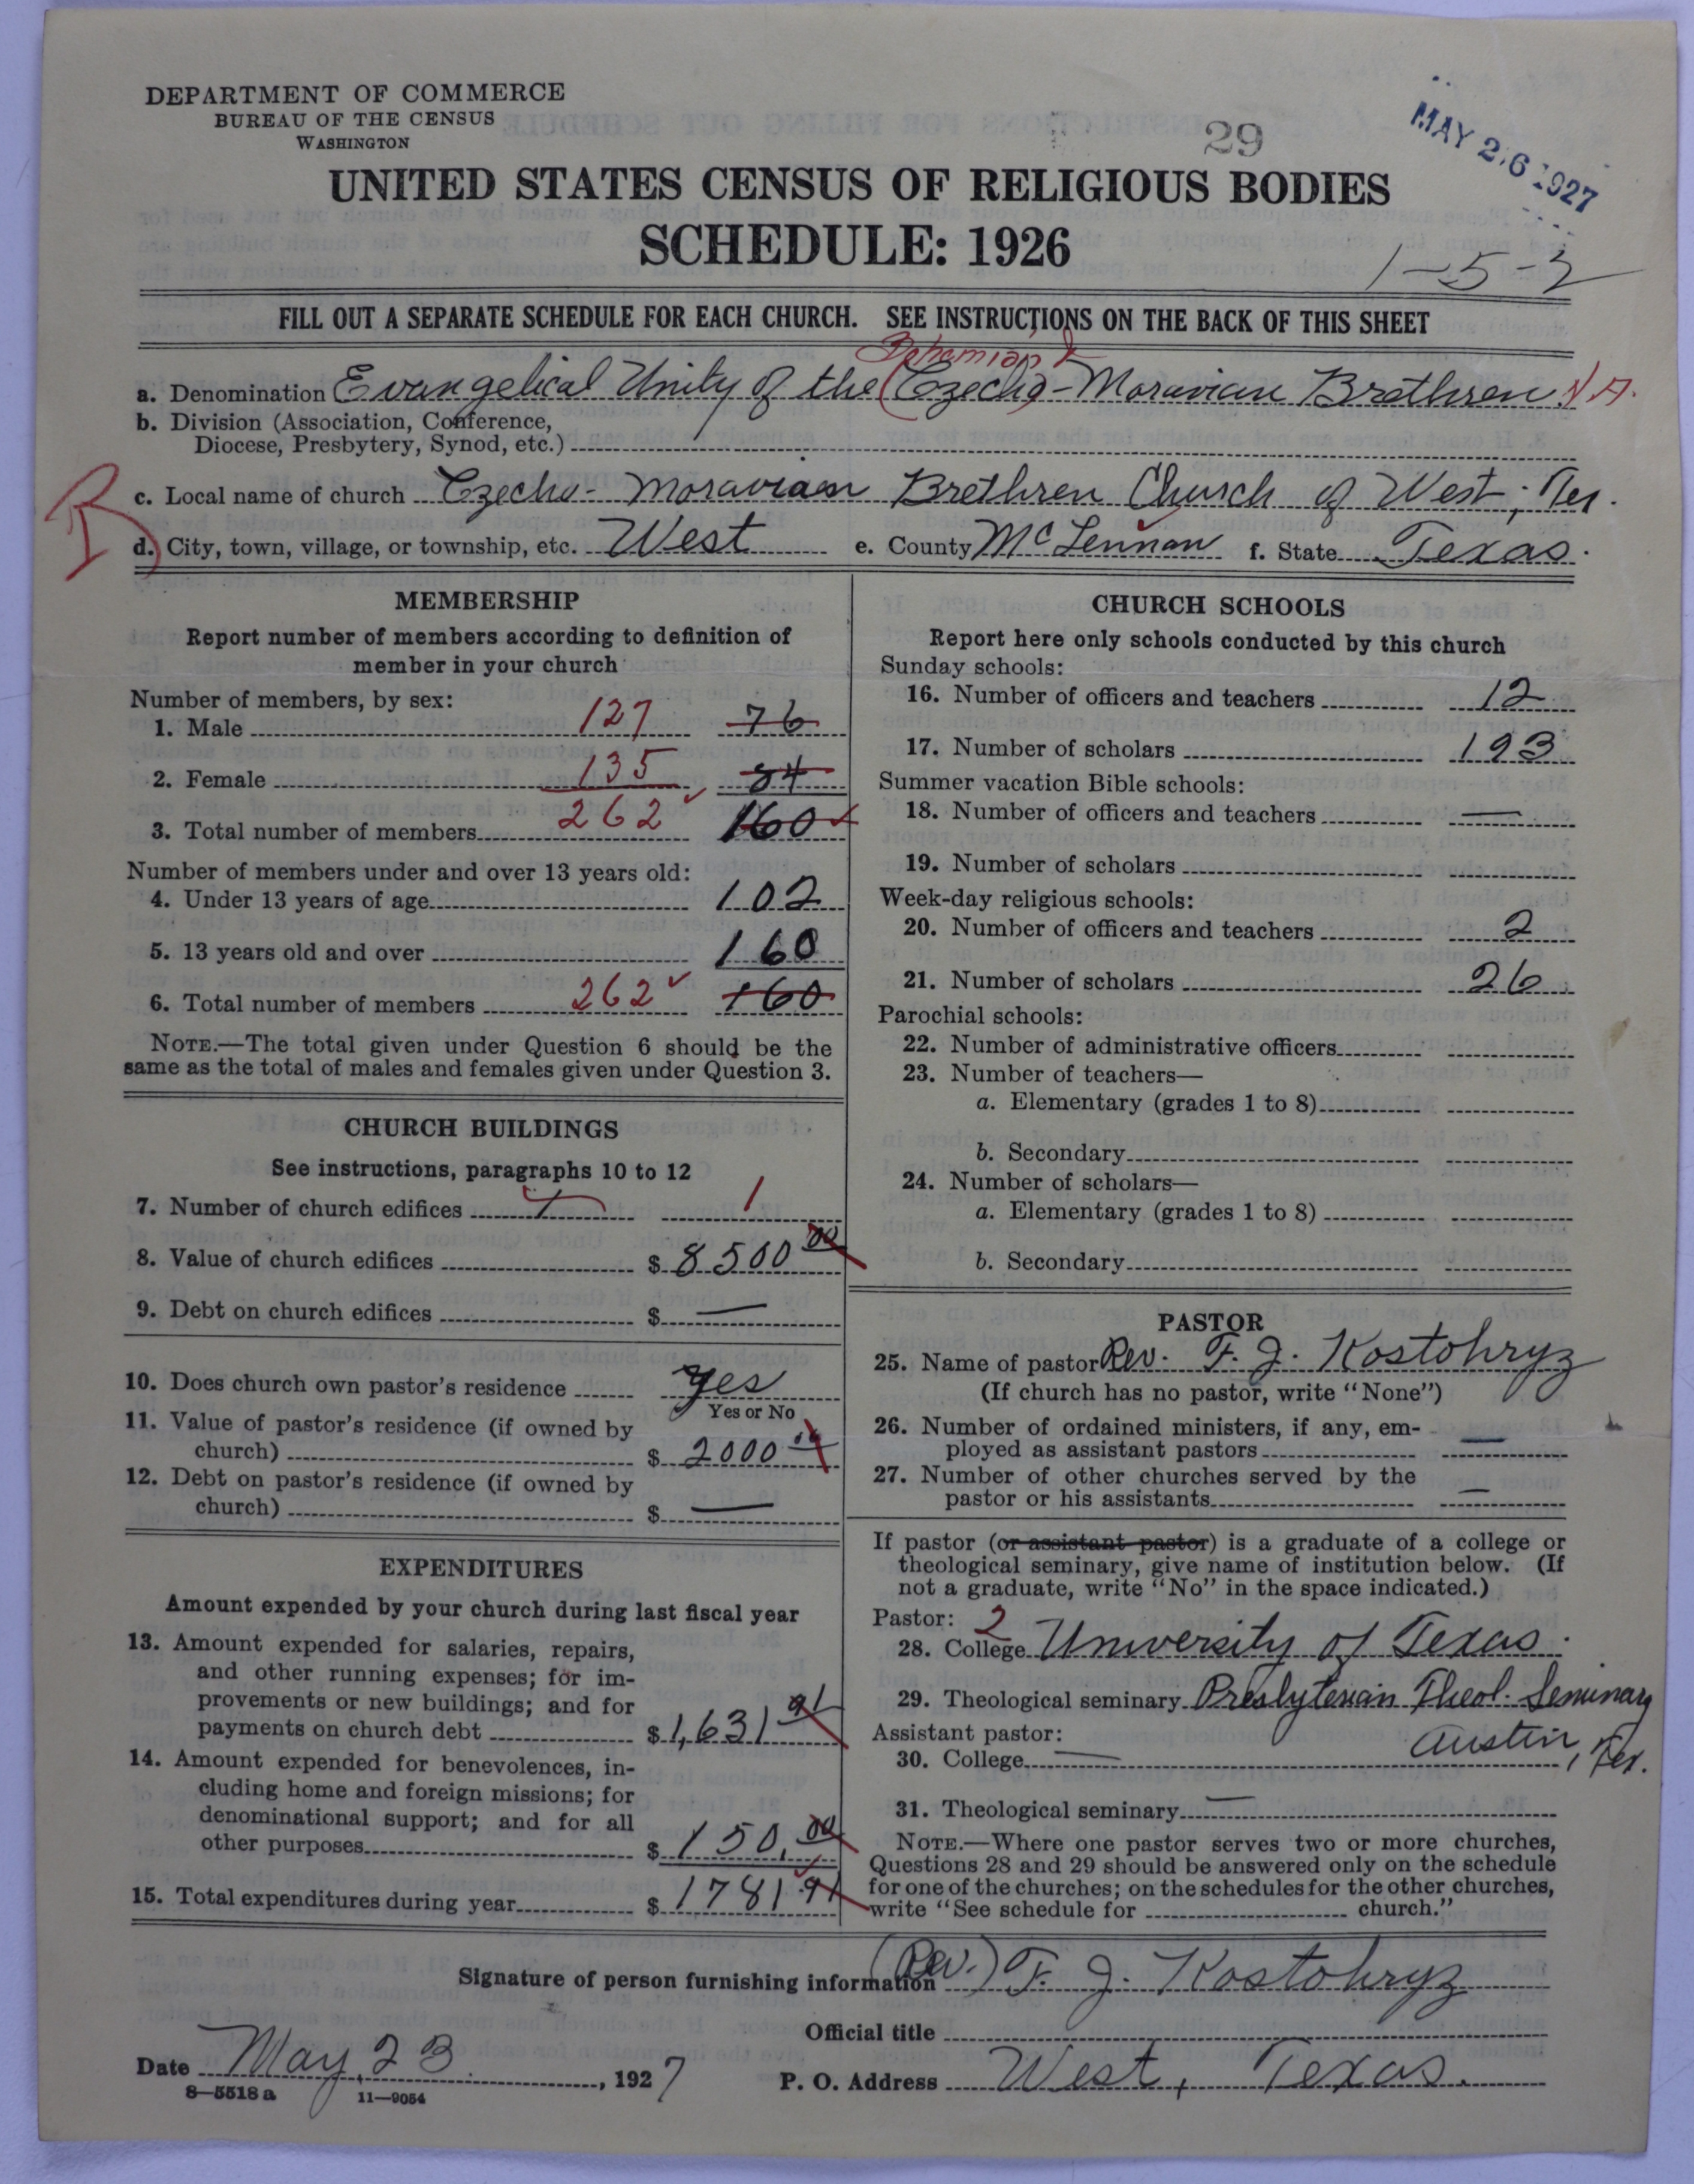 DEPARTMENT OF COMMERCE
BUREAU OF THE CENSUS
WASHINGTON
29
MAY 26 1927
UNITED STATES CENSUS OF RELIGIOUS BODIES
SCHEDULE: 1926
1-5-2
FILL OUT A SEPARATE SCHEDULE FOR EACH CHURCH. SEE INSTRUCTIONS ON THE BACK OF THIS SHEET
Bohemian &
a. Denomination Evangelical Unity of the (Czecho)-Moravian Brethren N.A.
b. Division (Association, Conference,
Diocese, Presbytery, Synod, etc.)
c. Local name of church Czecho-Moravian Brethren Church of West, Tex.
d. City, town, village, or township, etc. West e. County McLennan f. State Texas.
MEMBERSHIP
Report number of members according to definition of
member in your church
Number of members, by sex:
1. Male 127 76
2. Female 135 84
3. Total number of members 262 160
Number of members under and over 13 years old:
4. Under 13 years of age 102
5. 13 years old and over 160
6. Total number of members 262 160
NOTE.—The total given under Question 6 should be the
same as the total of males and females given under Question 3.
CHURCH BUILDINGS
See instructions, paragraphs 10 to 12
7. Number of church edifices 1 1
8. Value of church edifices $ 8500 00
9. Debt on church edifices $ —
10. Does church own pastor's residence Yes
Yes or No
11. Value of pastor's residence (if owned by
church) $ 2000 00
12. Debt on pastor's residence (if owned by
church) $ —
EXPENDITURES
Amount expended by your church during last fiscal year
13. Amount expended for salaries, repairs,
and other running expenses; for im-
provements or new buildings; and for
payments on church debt $ 1,631 91
14. Amount expended for benevolences, in-
cluding home and foreign missions; for
denominational support; and for all
other purposes $ 150.00
15. Total expenditures during year $ 1781.91
CHURCH SCHOOLS
Report here only schools conducted by this church
Sunday schools:
16. Number of officers and teachers 12
17. Number of scholars 193
Summer vacation Bible schools:
18. Number of officers and teachers —
19. Number of scholars
Week-day religious schools:
20. Number of officers and teachers 2
21. Number of scholars 26
Parochial schools:
22. Number of administrative officers
23. Number of teachers—
a. Elementary (grades 1 to 8)
b. Secondary
24. Number of scholars—
a. Elementary (grades 1 to 8)
b. Secondary
PASTOR
25. Name of pastor Rev. F. J. Kostohryz
(If church has no pastor, write "None")
26. Number of ordained ministers, if any, em-
ployed as assistant pastors —
27. Number of other churches served by the
pastor or his assistants —
If pastor (or assistant pastor) is a graduate of a college or
theological seminary, give name of institution below. (If
not a graduate, write "No" in the space indicated.)
Pastor: 2
28. College University of Texas.
29. Theological seminary Presbyterian Theol. Seminary
Assistant pastor: Austin, Tex.
30. College —
31. Theological seminary —
NOTE.—Where one pastor serves two or more churches,
Questions 28 and 29 should be answered only on the schedule
for one of the churches; on the schedules for the other churches,
write "See schedule for church."
Signature of person furnishing information (Rev.) F. J. Kostohryz
Official title
Date May 23, 1927 P. O. Address West, Texas.
8—5518a 11—9054